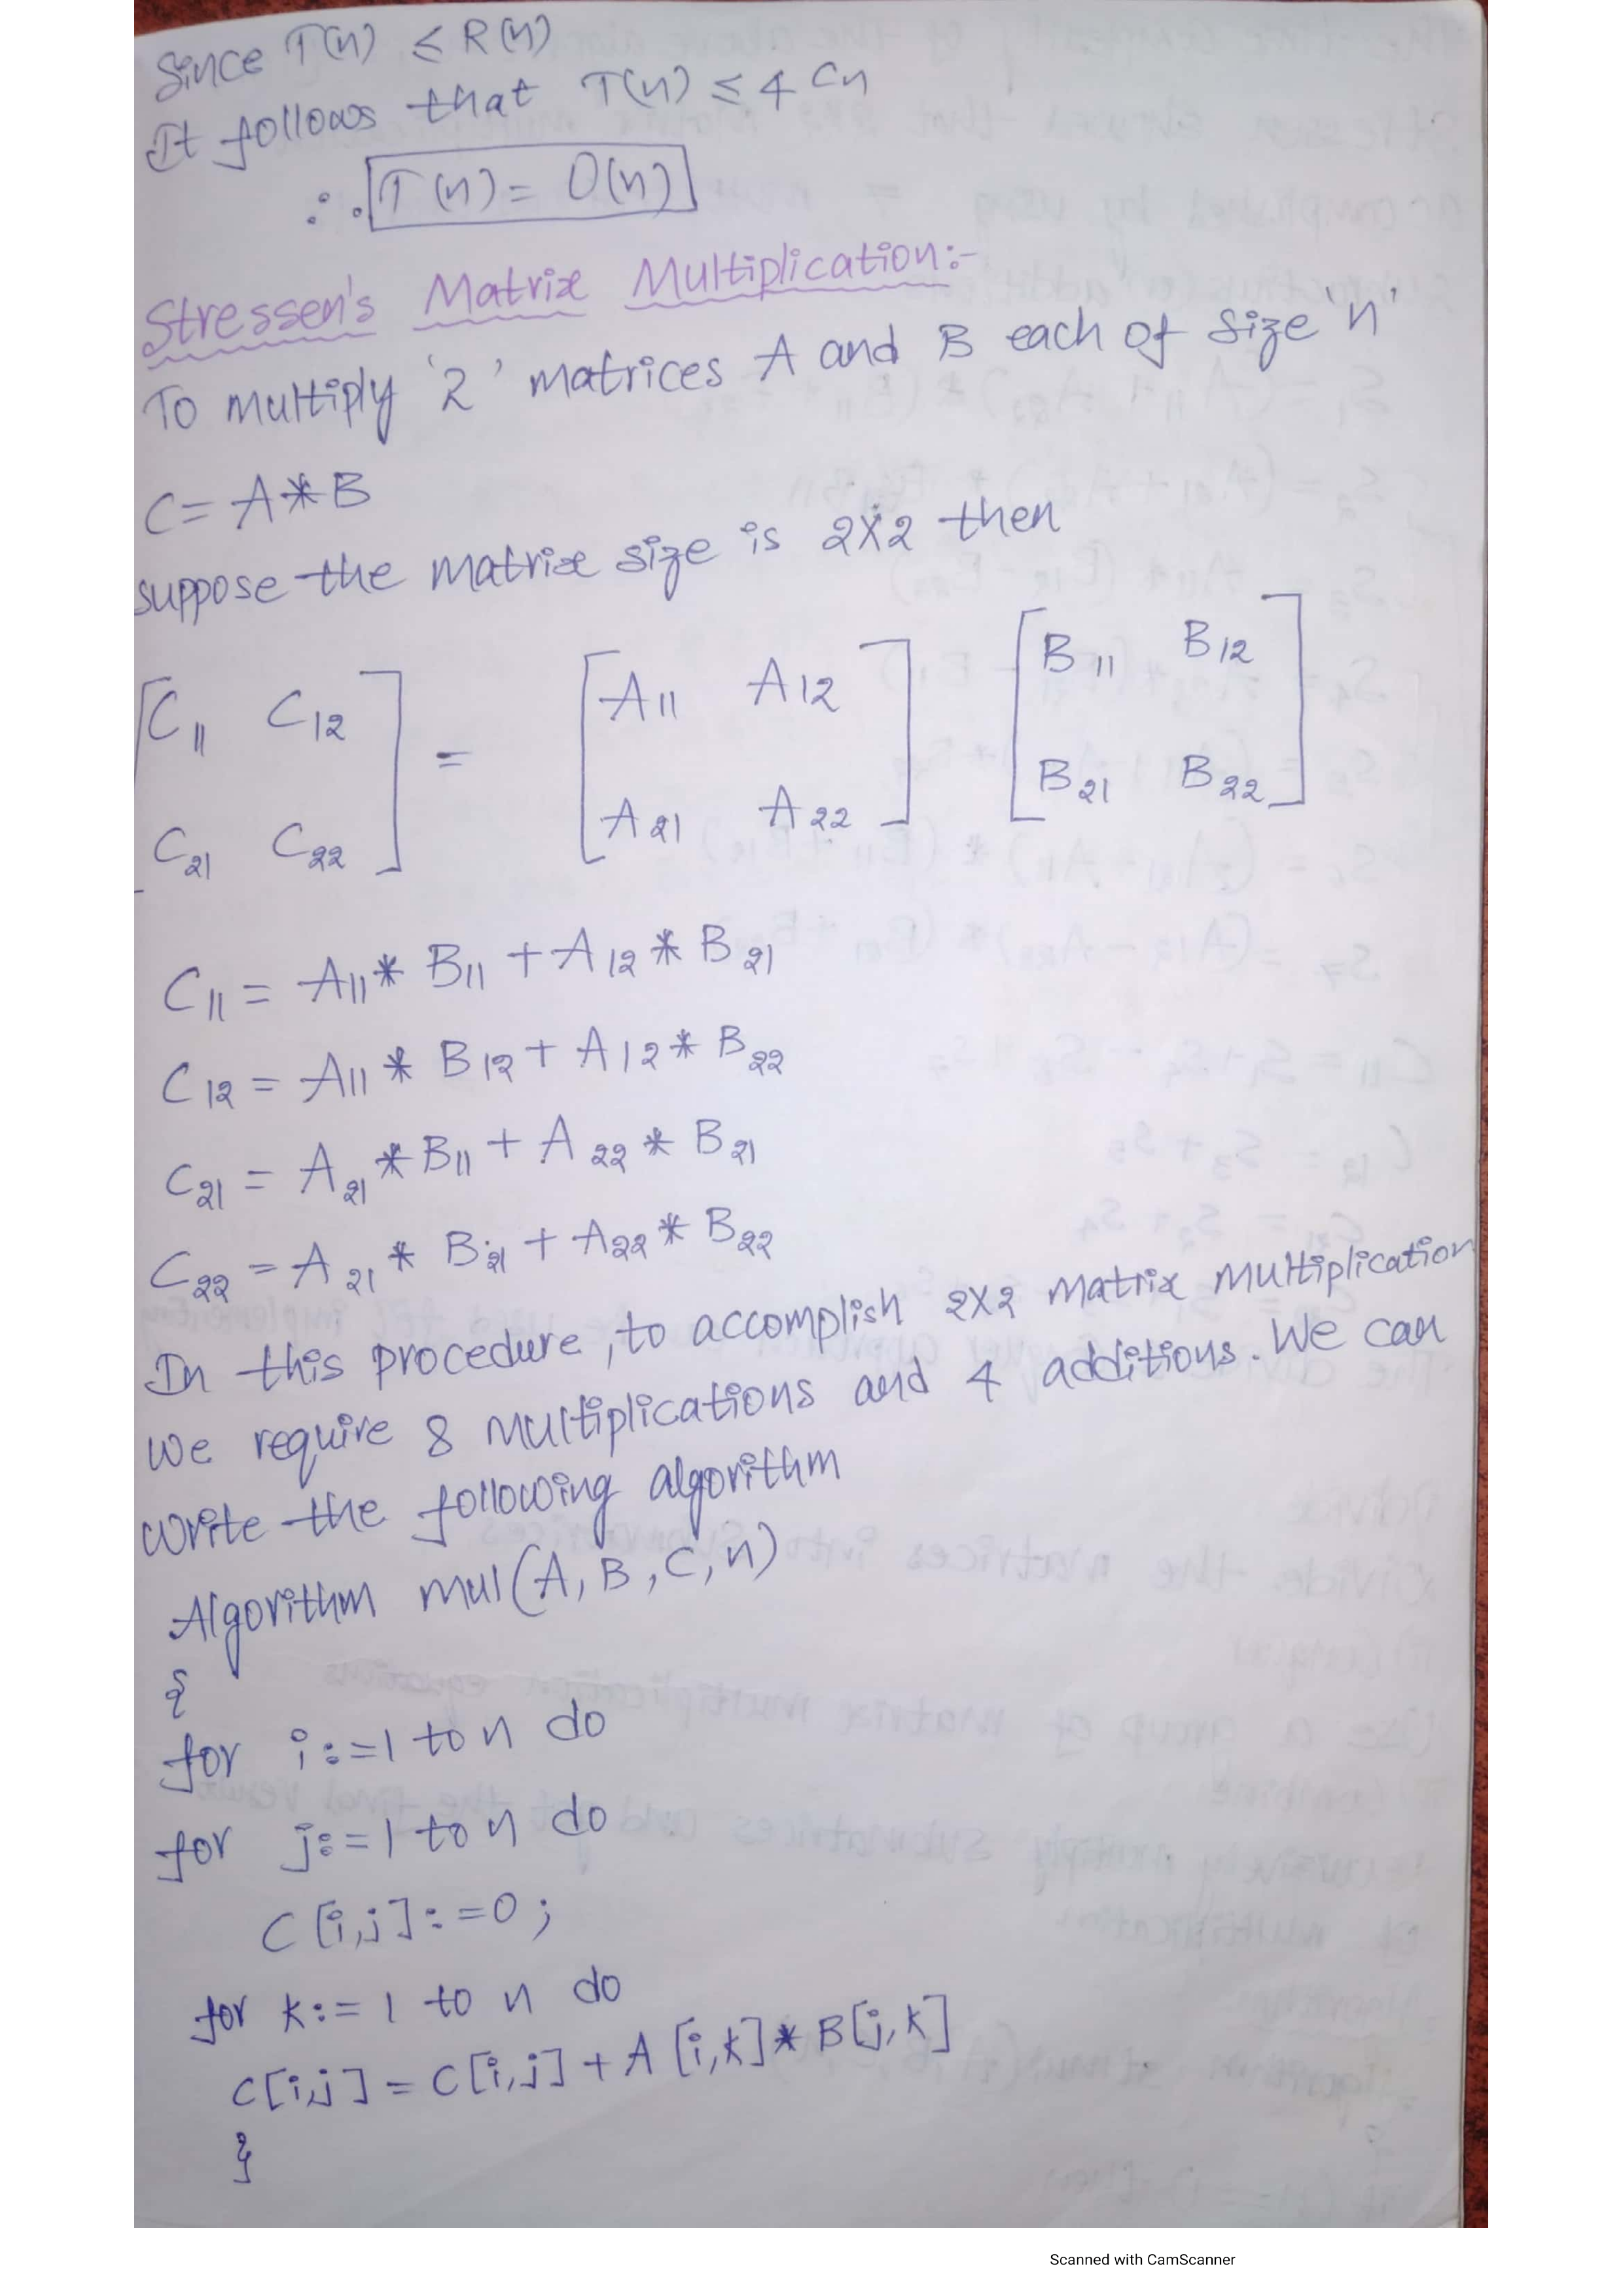 Since T(n) ≤ R(n)
It follows that T(n) ≤ 4 Cn
∴ T(n) = O(n)
Stressen's Matrix Multiplication:-
To multiply '2' matrices A and B each of size 'n'
C = A * B
suppose the matrix size is 2X2 then
[C11 C12] = [A11 A12] [B11 B12]
[C21 C22] [A21 A22] [B21 B22]
C11 = A11 * B11 + A12 * B21
C12 = A11 * B12 + A12 * B22
C21 = A21 * B11 + A22 * B21
C22 = A21 * B21 + A22 * B22
In this procedure, to accomplish 2X2 matrix multiplication
we require 8 multiplications and 4 additions. We can
write the following algorithm
Algorithm mul(A, B, C, n)
{
for i:=1 to n do
for j:=1 to n do
C[i,j]:=0;
for k:= 1 to n do
C[i,j] = C[i,j] + A[i,k] * B[j,k]
}
Scanned with CamScanner